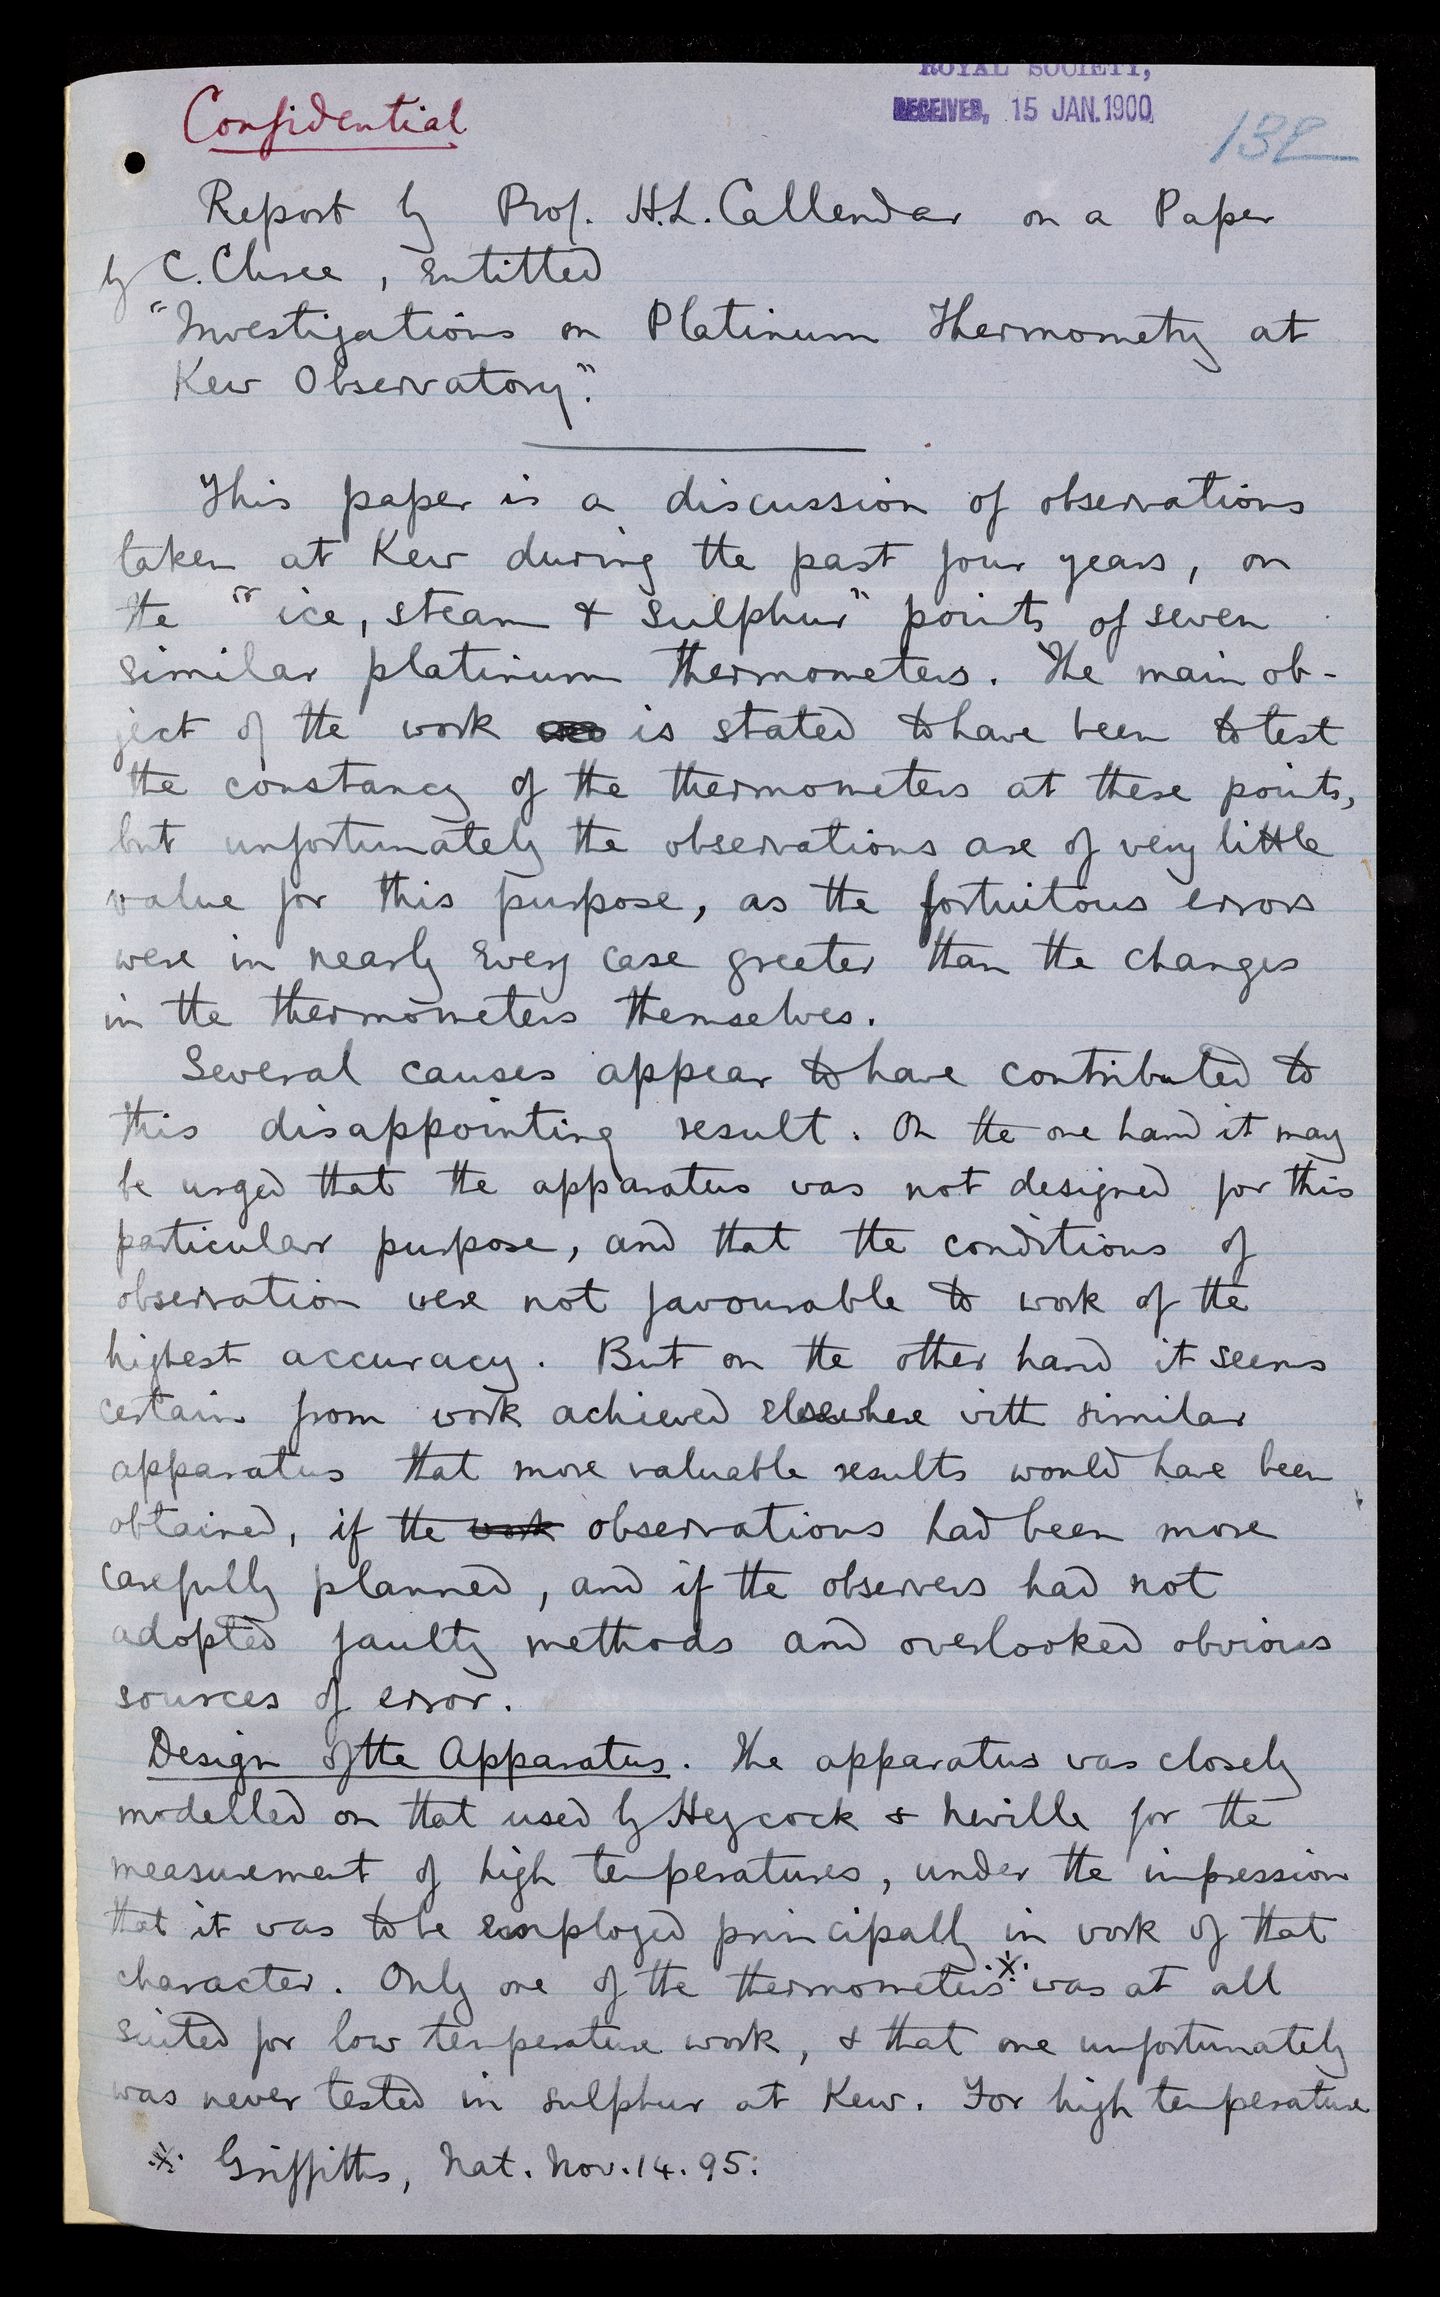 ROYAL SOCIETY,
RECEIVED, 15 JAN.1900
Confidential
132
Report by Prof. H.L. Callendar on a Paper
by C. Chree, entitled
"Investigations on Platinum Thermometry at
Kew Observatory".
This paper is a discussion of observations
taken at Kew during the past four years, on
the "ice, steam & sulphur" points of seven
similar platinum thermometers. The main ob-
ject of the work is stated to have been to test
the constancy of the thermometers at these points,
but unfortunately the observations are of very little
value for this purpose, as the fortuitous errors
were in nearly every case greater than the changes
in the thermometers themselves.
Several causes appear to have contributed to
this disappointing result. On the one hand it may
be urged that the apparatus was not designed for this
particular purpose, and that the conditions of
observation were not favourable to work of the
highest accuracy. But on the other hand it seems
certain from work achieved elsewhere with similar
apparatus that more valuable results would have been
obtained, if the work observations had been more
carefully planned, and if the observers had not
adopted faulty methods and overlooked obvious
sources of error.
Design of the Apparatus. The apparatus was closely
modelled on that used by Heycock & Neville for the
measurement of high temperatures, under the impression
that it was to be employed principally in work of that
character. Only one of the thermometers※ was at all
suited for low temperature work, & that one unfortunately
was never tested in sulphur at Kew. For high temperature
※ Griffiths, Nat. Nov. 14. 95.